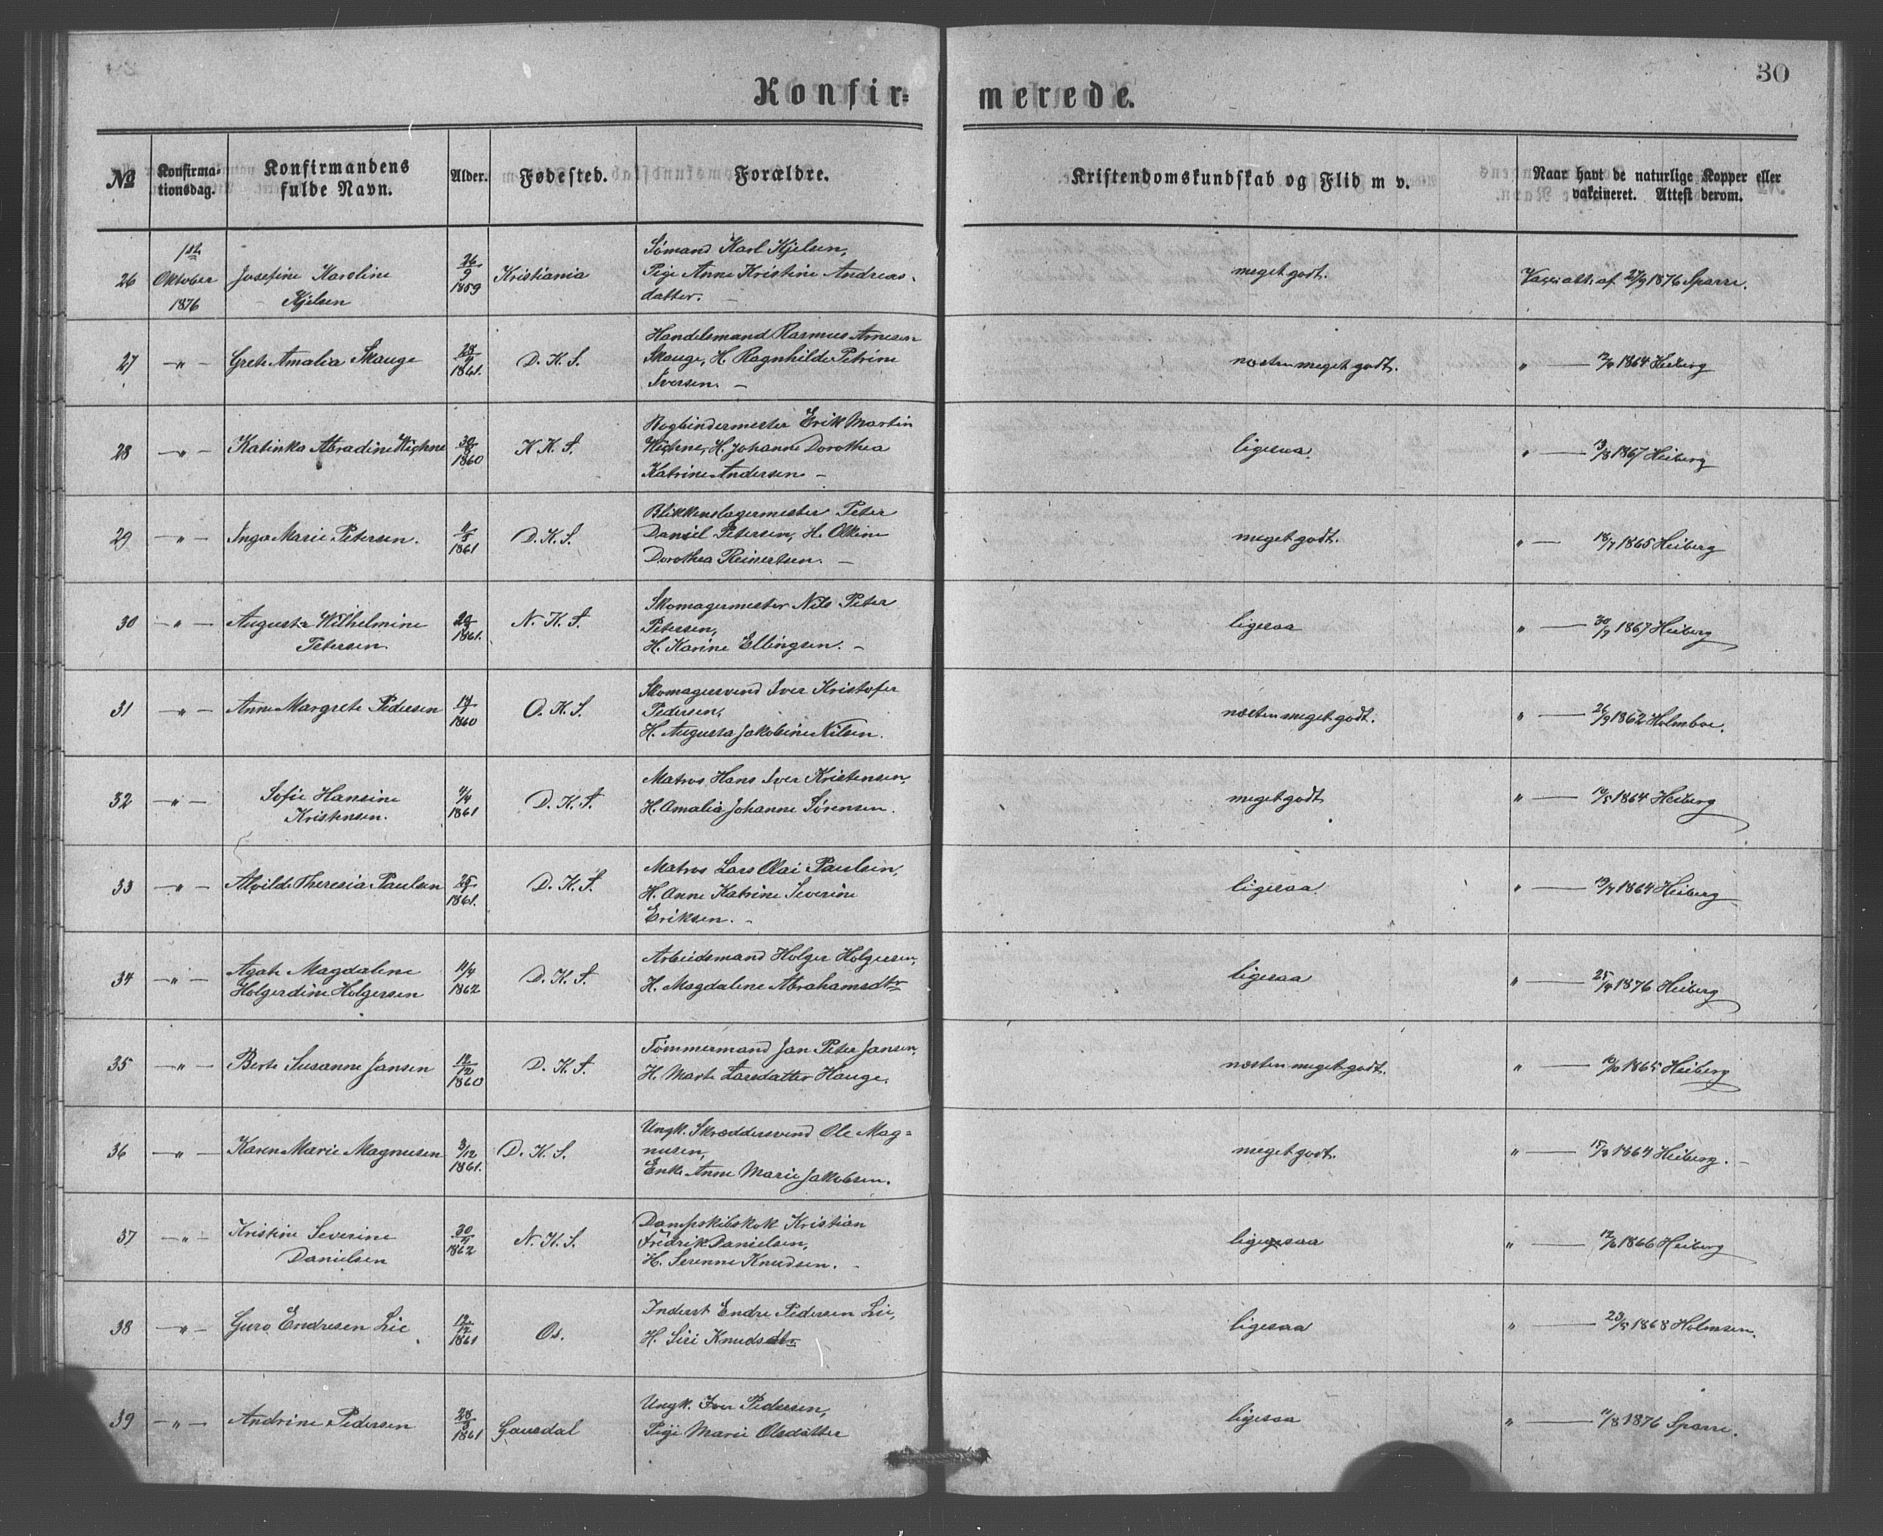 30
Konfir= merede.
№ Konfirma-tionsdag. Konfirmandens fulde Navn. Alder. Fødested. Forældre. Kristendomskundskab og Flid m v. Naar havt de naturlige Kopper eller vakcineret. Attest derom.
26 1ste Oktober 1876 Josefine Karoline Kjelsen 26/9 1859 Kristiania Sømand Karl Kjelsen, Pige Anne Kristine Andreas-datter. — meget godt. Vacc. att. af 27/9 1876 Sparre.
27 —"— Grete Amalia Skauge 28/4 1861. D. K. S. Handelsmand Rasmus Arnesen Skauge, H. Ragnhilde Petrine Iversen. — næsten meget godt. " — 1864 Heiberg
28 —"— Katinka Abradine Wichne 1860 K. K. S. Bogbindermester Erik Martin Wichne, H. Johanne Dorothea Katrine Andersen — ligesaa. " — 1867 Heiberg
29 —"— Inga Marie Petersen. 11/5 1861 D. K. S. Blikkenslagermester Peter Daniel Petersen, H. Oline Dorothea Reinertsen. — meget godt. " — 18/7 1865 Heiberg
30 —"— Augusta Wilhelmine Petersen. 1861. N. K. S. Skomagermester Nils Peter Petersen, H. Karine Ellingsen. — ligesaa " — 30/7 1867 Heiberg
31 —"— Anne Margrete Pedersen 1860 D. K. S. Skomagersvend Iver Kristofer Pedersen, H. Augusta Jakobine Nilsen. næsten meget godt. " — 26/9 1862 Holmboe.
32 —"— Sofie Hansine Kristensen. 11/4 1861 D. K. S. Matros Hans Iver Kristensen, H. Amalia Johanne Sørensen. meget godt " — 1864 Heiberg
33 —"— Alvilde Theresia Paulsen 1861. D. K. S. Matros Lars Olai Paulsen, H. Anne Katrine Severine Eriksen. — ligesaa. " — 1864 Heiberg
34 —"— Agate Magdalene Holgerdine Holgersen 11/4 1862 D. K. S. Arbeidsmand Holger Holgersen, H. Magdalene Abrahamsdtr ligesaa " — 25/4 1876 Heiberg
35 —"— Berte Susanne Jansen 18/12 1860 D. K. S. Tømmermand Jan Peter Jansen, H. Marte Larsdatter Hauge. næsten meget godt. " — 1865 Heiberg
36 —"— Karen Marie Magnusen 3/12 1861. D. K. S. Ungk. Skræddersvend Ole Mag=nusen, Enke Anne Marie Jakobsen. meget godt. " — 1864 Heiberg. —
37 —"— Kristine Severine Danielsen 1862 N. K. S. Dampskibskok Kristian Fredrik Danielsen, H. Serenne Knudsen. — ligesaa " — 1866 Heiberg
38 —"— Guro Endresen Lie 12/12 1861 Os. Inderst Endre Pedersen Lie, H. Siri Knudsdtr ligesaa " — 23/5 1868 Holmsen.
39 —"— Andrine Pedersen 1861 Gausdal Ungk. Iver Pedersen, Pige Marie Olsdatter ligesaa " — 11/8 1876 Sparre.